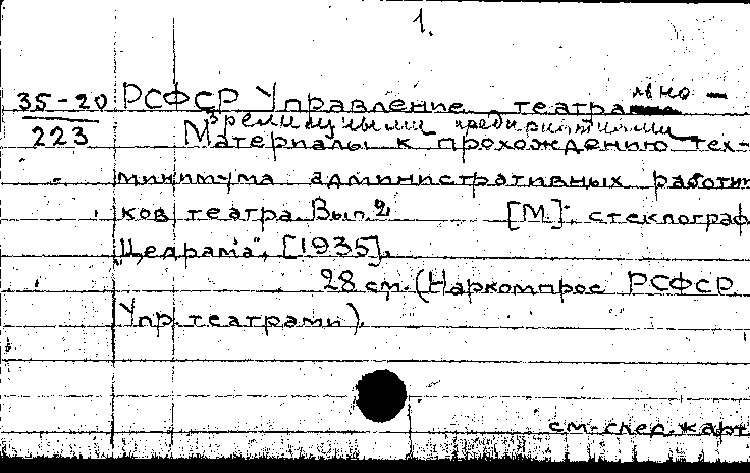 1.
35-20
223
РСФСР Управление театрально-
зрелищными предприятиями
Материалы к прохождению тех-
минимума административных работни
ков театра. Вып. 2. [М.], стеклограф
"Цедрама", [1935].
28 см. (Наркомпрос РСФСР
Упр. театрами).
см. след. карт